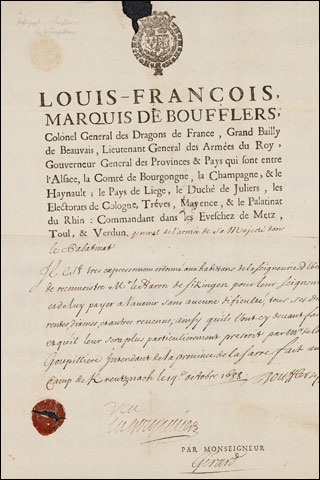 LOUIS-FRANÇOIS,
MARQUIS DE BOUFFLERS,
Colonel General des Dragons de France, Grand Bailly
de Beauvais, Lieutenant General des Armées du Roy,
Gouverneur General des Provinces & Pays qui sont entre
l'Alsace, la Comté de Bourgongne, la Champagne, & le
Haynault; le Pays de Liege, le Duché de Juliers, les
Electorats de Cologne, Tréves, Mayence, & le Palatinat
du Rhin: Commandant dans les Eveschez de Metz,
Toul, & Verdun, general de l'armée de sa Majesté dans
le Palatinat
Il est tres expressement ordonné aux habitans de la seigneurie
de reconnoistre Mr le Baron de Sikingen pour leur seigneur
et de luy payer a l'avenir sans aucune dificulté, tous ses
rentes, dixmes, et autres revenus, ainsy quils l'ont cy devant fait
et quil leur sera plus particulierement prescrit par Mr de la
Goupilliere Intendant de la province de la sarre, fait au
Camp de Kreutznach le octobre 1688 Boufflers
veu
PAR MONSEIGNEUR
Gerard